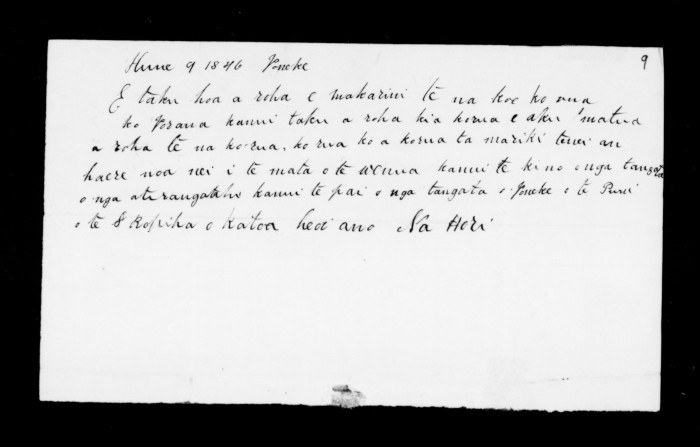 Hune 9 1846 Poneke
9
E taku hoa a roha e makarini te na koe ko rua
ko Porana kanui taku a roha kia korua e aku matua
a roha te na ko-rua, ko rua ko a korua ta mariki tenei au
haere noa nei i te mata o te wenua kanui te ki no o nga tangata
o nga ati rangatahi kanui te pai o nga tangata o Poneke o te Puni
o te Ropiha o katoa heoi ano Na Hori